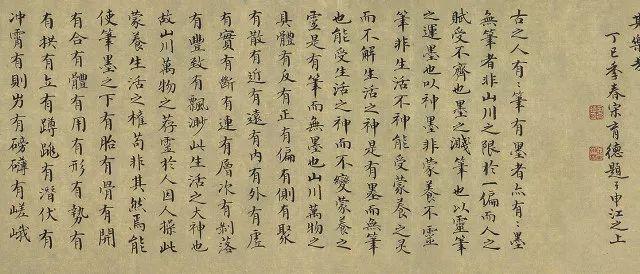 丁巳季春宗育德題于申江之上
古之人有〻筆有墨者亦有〻墨
無筆者非山川之限於一偏而人之
賦受不齊也墨之濺筆也以靈筆
之運墨也以神墨非蒙養不靈
筆非生活不神能受蒙養之灵
而不解生活之神是有墨而無筆
也能受生活之神而不變蒙養之
靈是有筆而無墨也山川萬物之
具體有反有正有偏有側有聚
有散有近有遠有内有外有虛
有實有斷有連有層次有剝落
有豐致有飄渺此生活之大神也
故山川萬物之荐靈於人因人操此
蒙養生活之權苟非其然焉能
使筆墨之下有胎有骨有開
有合有體有用有形有勢有
有拱有立有蹲跳有潛伏有
冲霄有則屴有磅礴有嵯峨